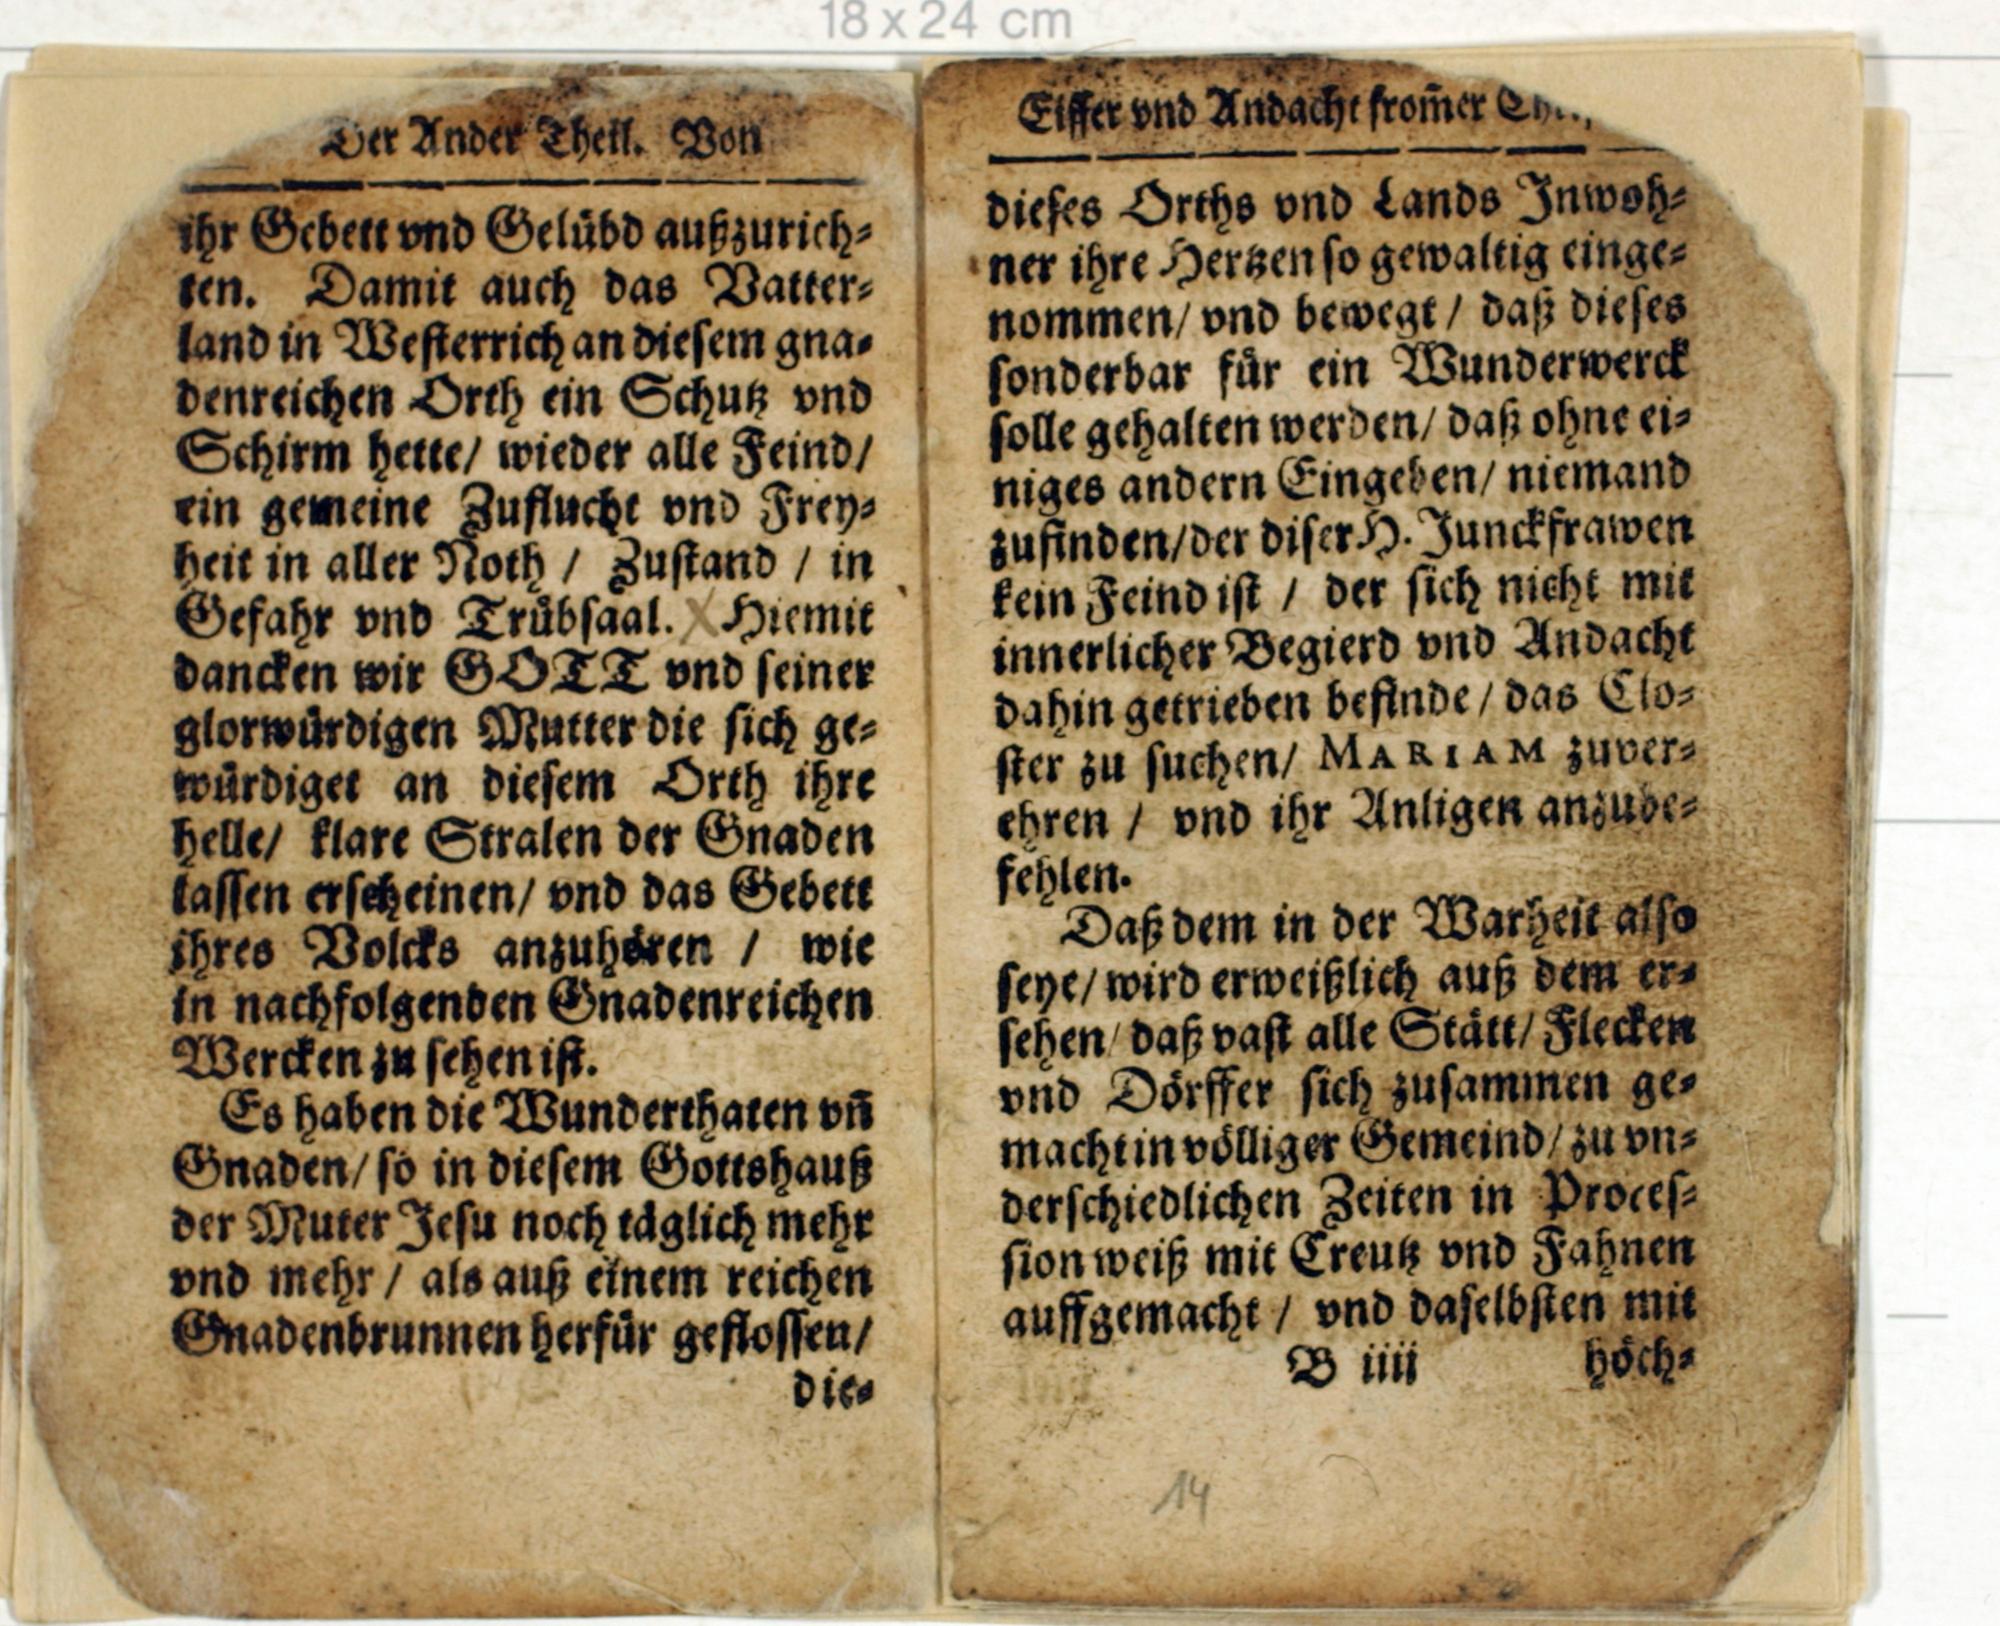 18 x 24 cm
Der Ander Theil. Von
ihr Gebett vnd Gelübd außzurich⸗
ten. Damit auch das Vatter⸗
land in Westerrich an diesem gna⸗
denreichen Orth ein Schutz vnd
Schirm hette/ wieder alle Feind/
ein gemeine Zuflucht vnd Frey⸗
heit in aller Noth / Zustand / in
Gefahr vnd Trübsaal. X Hiemit
dancken wir GOTT vnd seiner
glorwürdigen Mutter die sich ge⸗
würdiget an diesem Orth ihre
helle/ klare Stralen der Gnaden
lassen erscheinen/ vnd das Gebett
ihres Volcks anzuhören / wie
in nachfolgenden Gnadenreichen
Wercken zu sehen ist.
Es haben die Wunderthaten vñ
Gnaden/ so in diesem Gottshauß
der Muter Jesu noch täglich mehr
vnd mehr / als auß einem reichen
Gnadenbrunnen herfür geflossen/
die⸗
Eiffer vnd Andacht from̃er
dieses Orths vnd Lands Inwoh⸗
ner ihre Hertzen so gewaltig einge⸗
nommen/ vnd bewegt / daß dieses
sonderbar für ein Wunderwerck
solle gehalten werden/ daß ohne ei⸗
niges andern Eingeben/ niemand
zufinden/ der diser H. Junckfrawen
kein Feind ist / der sich nicht mit
innerlicher Begierd vnd Andacht
dahin getrieben befinde / das Clo⸗
ster zu suchen/ MARIAM zuver⸗
ehren / vnd ihr Anligen anzube⸗
fehlen.
Daß dem in der Warheit also
seye/ wird erweißlich auß dem er⸗
sehen/ daß vast alle Stätt/ Flecken
vnd Dörffer sich zusammen ge⸗
macht in völliger Gemeind/ zu vn⸗
derschiedlichen Zeiten in Proces⸗
sion weiß mit Creutz vnd Fahnen
auffgemacht / vnd daselbsten mit
B iiii höch⸗
14